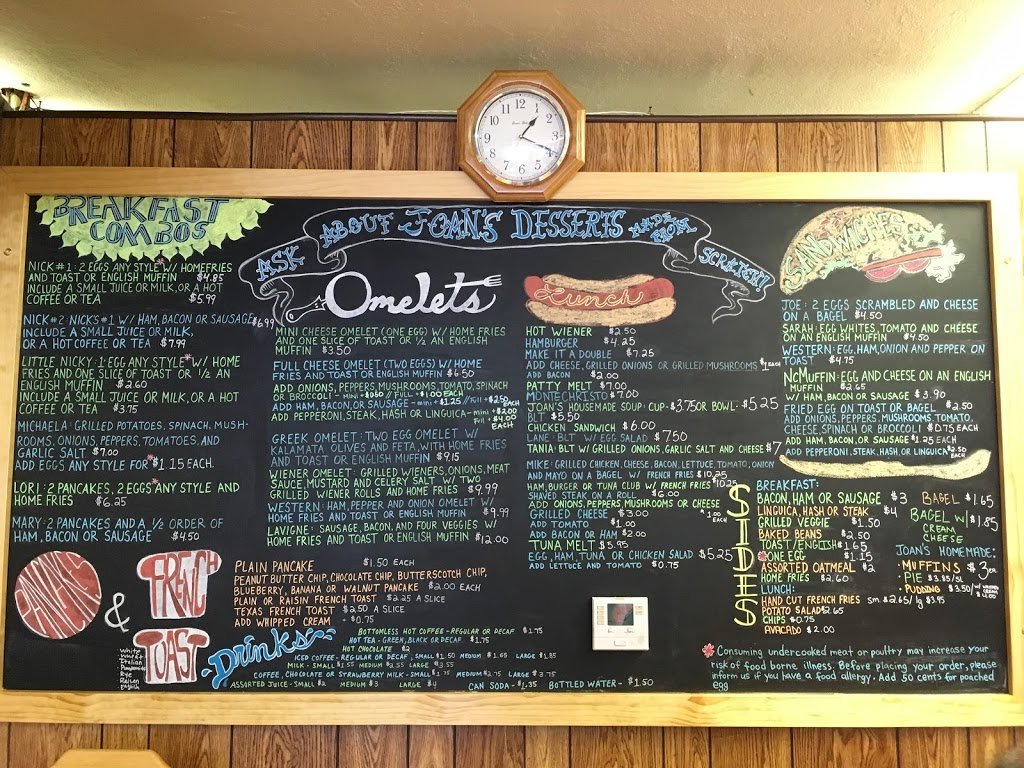 12 1 2 3 4 5 6 7 8 9 10 11
ASK ABOUT JOAN'S DESSERTS MADE FROM SCRATCH!!
BREAKFAST
COMBOS
NICK #1: 2 EGGS ANY STYLE* W/ HOMEFRIES
AND TOAST OR ENGLISH MUFFIN $4.85
INCLUDE A SMALL JUICE OR MILK, OR A HOT
COFFEE OR TEA $5.99
NICK #2: NICKS #1 W/ HAM, BACON OR SAUSAGE $6.99
INCLUDE A SMALL JUICE OR MILK,
OR A HOT COFFEE OR TEA $7.99
LITTLE NICKY: 1 EGG ANY STYLE* W/ HOME
FRIES AND ONE SLICE OF TOAST OR 1/2 AN
ENGLISH MUFFIN $2.60
INCLUDE A SMALL JUICE OR MILK, OR A HOT
COFFEE OR TEA $3.75
MICHAELA: GRILLED POTATOES, SPINACH, MUSH-
ROOMS, ONIONS, PEPPERS, TOMATOES, AND
GARLIC SALT $7.00
ADD EGGS ANY STYLE FOR* $1.15 EACH.
LORI: 2 PANCAKES, 2 EGGS* ANY STYLE AND
HOME FRIES $6.25
MARY: 2 PANCAKES AND A 1/2 ORDER OF
HAM, BACON OR SAUSAGE $4.50
Omelets
MINI CHEESE OMELET (ONE EGG) W/ HOME FRIES
AND ONE SLICE OF TOAST OR 1/2 AN ENGLISH
MUFFIN $3.50
FULL CHEESE OMELET (TWO EGGS) W/ HOME
FRIES AND TOAST OR ENGLISH MUFFIN $6.50
ADD ONIONS, PEPPERS, MUSHROOMS, TOMATO, SPINACH
OR BROCCOLI - MINI + $0.60 // FULL + $1.00 EACH
ADD HAM, BACON OR SAUSAGE - mini + $1.25 // FULL + EACH
ADD PEPPERONI, STEAK, HASH OR LINGUICA - mini + $2.00
FULL + $4.00
EACH
GREEK OMELET: TWO EGG OMELET W/
KALAMATA OLIVES AND FETA, WITH HOME FRIES
AND TOAST OR ENGLISH MUFFIN $9.15
WIENER OMELET: GRILLED WIENERS, ONIONS, MEAT
SAUCE, MUSTARD AND CELERY SALT W/ TWO
GRILLED WIENER ROLLS AND HOME FRIES $9.99
WESTERN: HAM, PEPPER AND ONION OMELET W/
HOME FRIES AND TOAST OR ENGLISH MUFFIN $9.99
LAVIGNE: SAUSAGE, BACON, AND FOUR VEGGIES W/
HOME FRIES AND TOAST OR ENGLISH MUFFIN $12.00
Lunch
HOT WIENER $2.50
HAMBURGER $4.25
MAKE IT A DOUBLE $7.25
ADD CHEESE, GRILLED ONIONS OR GRILLED MUSHROOMS EACH
ADD BACON $2.00
PATTY MELT $7.00
MONTECHRISTO $7.00
JOAN'S HOUSEMADE SOUP: CUP - $3.75 OR BOWL: $5.25
BLT $5.50
CHICKEN SANDWICH $6.00
LANE: BLT W/ EGG SALAD $7.50
TANIA: BLT W/ GRILLED ONIONS, GARLIC SALT AND CHEESE $7
MIKE: GRILLED CHICKEN, CHEESE, BACON, LETTUCE, TOMATO, ONION
AND MAYO ON A BAGEL W/ FRENCH FRIES $10.25
HAM, BURGER OR TUNA CLUB W/ FRENCH FRIES $10.25
SHAVED STEAK ON A ROLL $6.00
ADD ONIONS, PEPPERS, MUSHROOMS OR CHEESE $1.00 EACH
GRILLED CHEESE $3.00
ADD TOMATO $1.00
ADD BACON OR HAM $2.00
TUNA MELT $5.95
EGG, HAM, TUNA OR CHICKEN SALAD $5.25
ADD LETTUCE AND TOMATO $0.75
SANDWICHES
JOE: 2 EGGS SCRAMBLED AND CHEESE
ON A BAGEL $4.50
SARAH: EGG WHITES, TOMATO AND CHEESE
ON AN ENGLISH MUFFIN $4.50
WESTERN: EGG, HAM, ONION AND PEPPER ON
TOAST $4.75
NCMUFFIN: EGG AND CHEESE ON AN ENGLISH
MUFFIN $2.65
W/ HAM, BACON OR SAUSAGE $3.90
FRIED EGG ON TOAST OR BAGEL $2.50
ADD ONIONS, PEPPERS, MUSHROOMS, TOMATO,
CHEESE, SPINACH OR BROCCOLI $0.75 EACH
ADD HAM, BACON, OR SAUSAGE $1.25 EACH
ADD PEPPERONI, STEAK, HASH, OR LINGUICA $2.50 EACH
SIDES
BREAKFAST:
BACON, HAM OR SAUSAGE $3
LINGUICA, HASH OR STEAK $4
GRILLED VEGGIE $1.50
BAKED BEANS $2.50
TOAST/ENGLISH $1.65
*ONE EGG $1.15
ASSORTED OATMEAL $2
HOME FRIES $2.60
LUNCH:
HAND CUT FRENCH FRIES sm. $2.65/lg $3.95
POTATO SALAD $2.65
CHIPS $0.75
AVACADO $2.00
BAGEL $1.65
BAGEL W/ CREAM CHEESE $1.85
JOAN'S HOMEMADE:
• MUFFINS $3 EA
• PIE $3.25/SL
• PUDDING $3.50/ W/ WHIPPED CREAM $4.00
PANCAKES
&
FRENCH
TOAST
White
Wheat
Italian
Rye
Raisin
English
PLAIN PANCAKE $1.50 EACH
PEANUT BUTTER CHIP, CHOCOLATE CHIP, BUTTERSCOTCH CHIP,
BLUEBERRY, BANANA OR WALNUT PANCAKE $2.00 EACH
PLAIN OR RAISIN FRENCH TOAST $2.25 A SLICE
TEXAS FRENCH TOAST $2.50 A SLICE
ADD WHIPPED CREAM - $0.75
Drinks
BOTTOMLESS HOT COFFEE - REGULAR OR DECAF $1.75
HOT TEA - GREEN, BLACK OR DECAF $1.75
HOT CHOCOLATE $2
ICED COFFEE - REGULAR OR DECAF, SMALL $1.50 MEDIUM $1.65 LARGE $1.85
MILK - SMALL $1.55 MEDIUM $2.55 LARGE $3.55
COFFEE, CHOCOLATE OR STRAWBERRY MILK - SMALL $1.75 MEDIUM $2.75 LARGE $3.75
ASSORTED JUICE - SMALL $2 MEDIUM $3 LARGE $4 CAN SODA - $1.35 BOTTLED WATER - $1.50
* Consuming undercooked meat or poultry may increase your
risk of food borne illness. Before placing your order, please
inform us if you have a food allergy. Add 50 cents for poached
egg